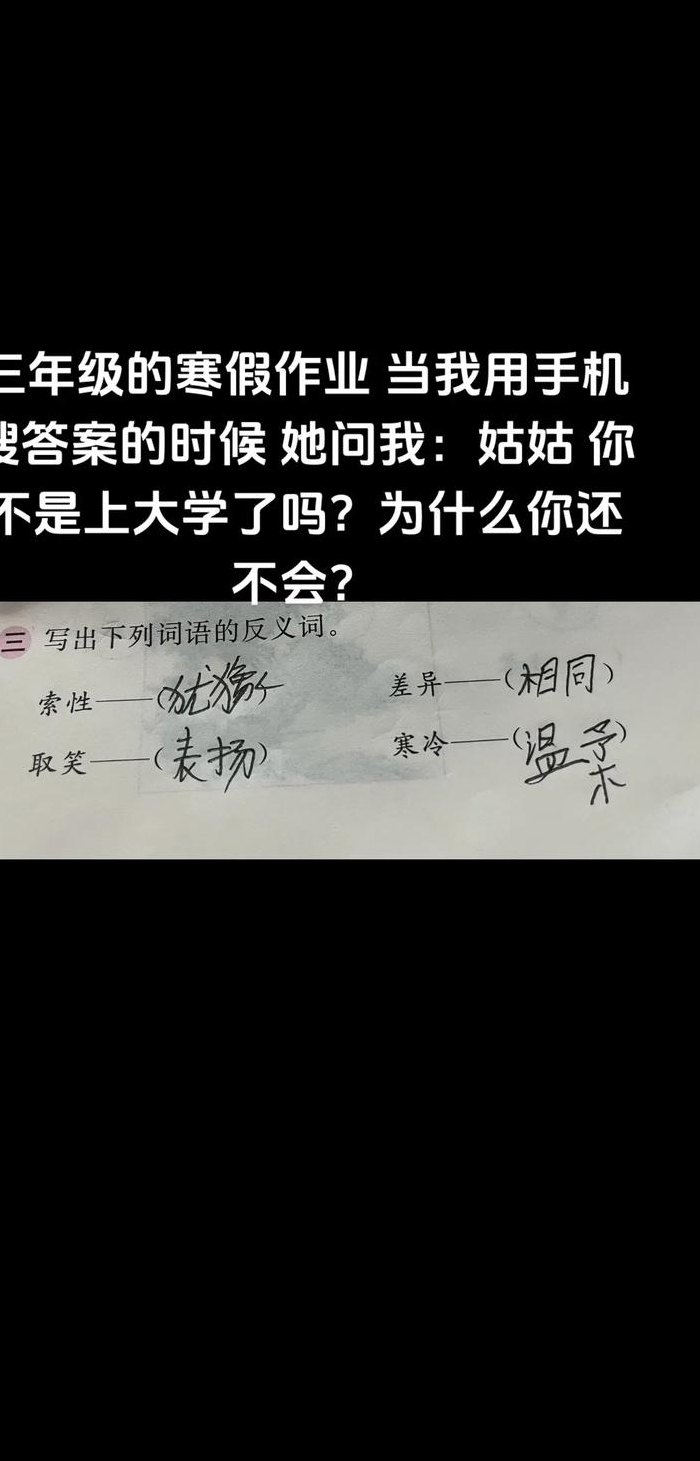 三年级的寒假作业 当我用手机
搜答案的时候 她问我：姑姑 你
不是上大学了吗？为什么你还
不会？
三 写出下列词语的反义词。
索性——（犹豫） 差异——（相同）
取笑——（表扬） 寒冷——（温柔）